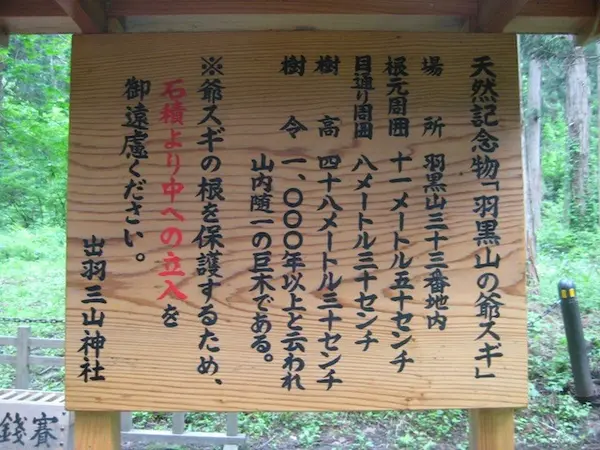 天然記念物「羽黒山の爺スギ」
場所 羽黒山三十三番地内
根元周囲 十一メートル五十センチ
目通り周囲 八メートル三十センチ
樹高 四十八メートル三十センチ
樹令 一、〇〇〇年以上と云われ
山内随一の巨木である。
※爺スギの根を保護するため、
石積より中への立入を
御遠慮ください。
出羽三山神社
賽銭